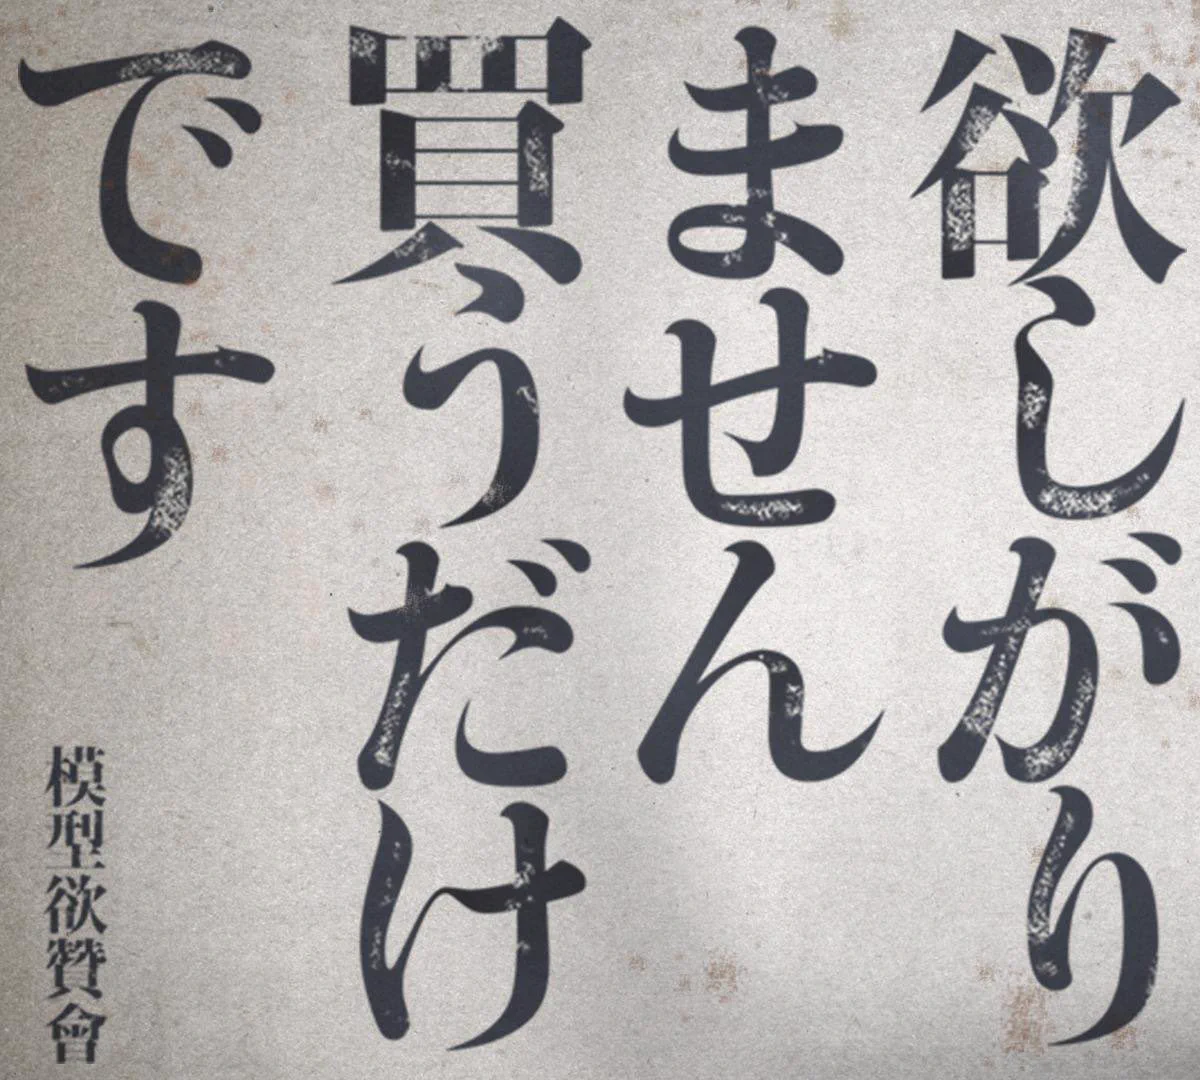 欲しがり
ません
買うだけ
です
模型欲贊會